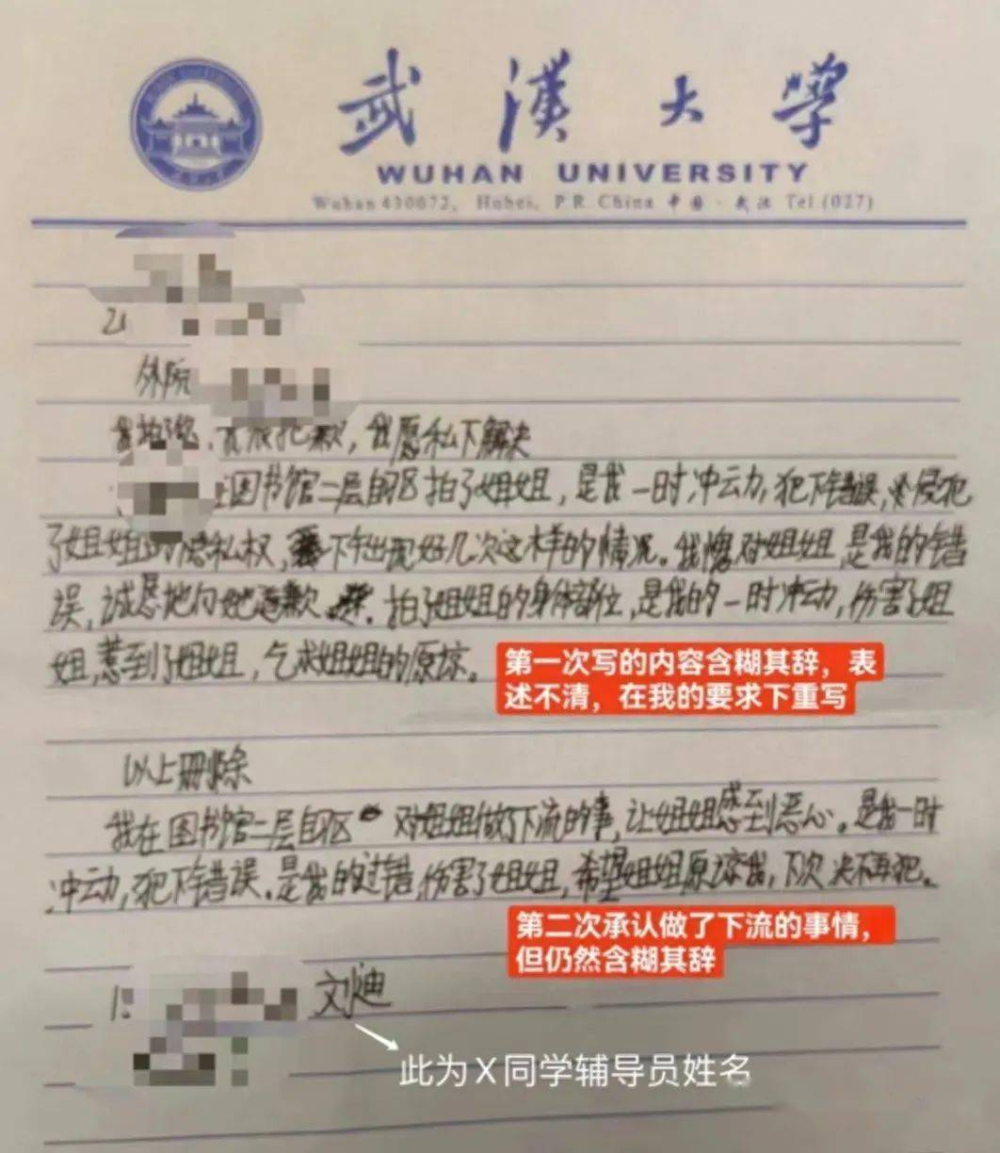 武漢大學
WUHAN UNIVERSITY
Wuhan 430072, Hubei, P.R.China 中国·武汉 Tel.(027)
外院
我愿私下解决
在图书馆二层自习区拍了姐姐，是我一时冲动，犯下错误，侵犯
了姐姐的隐私权，下午出现好几次这样的情况。我愧对姐姐，是我的错
误，诚恳地向她道歉。拍了姐姐的身体部位，是我的一时冲动，伤害了姐
姐，惹到了姐姐，乞求姐姐的原谅。
第一次写的内容含糊其辞，表
述不清，在我的要求下重写
以上删除
我在图书馆二层自习区对姐姐做了下流的事，让姐姐感到恶心。是我一时
冲动，犯下错误。是我的过错，伤害了姐姐，希望姐姐原谅我，下次决不再犯。
第二次承认做了下流的事情，
但仍然含糊其辞
刘迪
此为X同学辅导员姓名